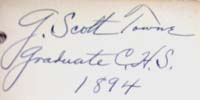 G. Scott Towne
Graduate C.H.S.
1894